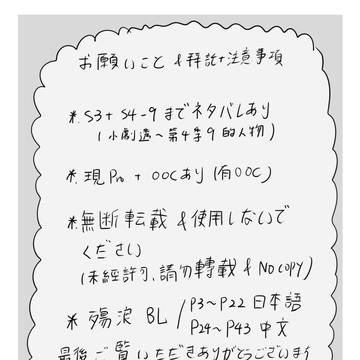 お願いこと & 拜託+注意事項
*. S3+ S4-9 までネタバレあり
(小劇透~第4季9的人物)
*. 現Pa + OOCあり (有OOC)
*無断転載 & 使用しないで
ください
(未經許可、請勿轉載 & No copy)
* 殤浪 BL / P3~P22 日本語
P24~P43 中文
最後ご覧いただきありがとうございます